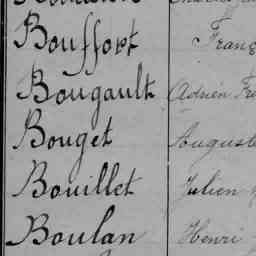 Bouffort Franç
Bougault Adrien Fr
Bouget Auguste
Bouillet Julien
Boulan Henri